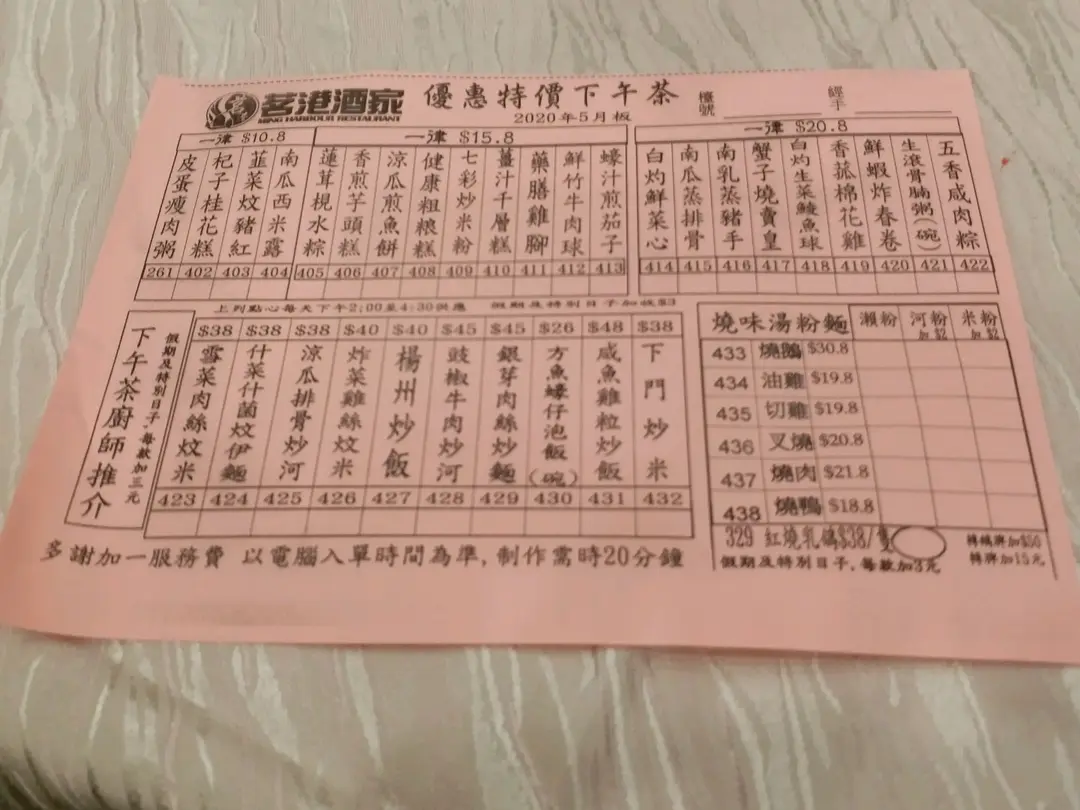 茗港酒家
MING HARBOUR RESTAURANT
優惠特價下午茶
2020年5月板
檯號
經手
一律 $10.8
一律 $15.8
一律 $20.8
皮蛋瘦肉粥 261
杞子桂花糕 402
韮菜炆豬紅 403
南瓜西米露 404
蓮茸梘水粽 405
香煎芋頭糕 406
涼瓜煎魚餅 407
健康粗糧糕 408
七彩炒米粉 409
薑汁千層糕 410
藥膳雞腳 411
鮮竹牛肉球 412
蠔汁煎茄子 413
白灼鮮菜心 414
南瓜蒸排骨 415
南乳蒸豬手 416
蟹子燒賣皇 417
白灼生菜鯪魚球 418
香菰棉花雞 419
鮮蝦炸春卷 420
生滾骨腩粥(碗) 421
五香咸肉粽 422
上列點心每天下午2;00至4:30供應 假期及特別日子加收$3
下午茶廚師推介
假期及特別日子,每款加三元
$38 雪菜肉絲炆米 423
$38 什菜什菌炆伊麵 424
$38 涼瓜排骨炒河 425
$40 炸菜雞絲炆米 426
$40 楊州炒飯 427
$45 豉椒牛肉炒河 428
$45 銀芽肉絲炒麵 429
$26 方魚蠔仔泡飯(碗) 430
$48 咸魚雞粒炒飯 431
$38 下門炒米 432
燒味湯粉麵
瀨粉
河粉 加$2
米粉 加$2
433 燒鵝 $30.8
434 油雞 $19.8
435 切雞 $19.8
436 叉燒 $20.8
437 燒肉 $21.8
438 燒鴨 $18.8
329 紅燒乳鴿$38/隻
加$50
加15元
假期及特別日子,每款加3元
多謝加一服務費 以電腦入單時間為準,制作需時20分鐘